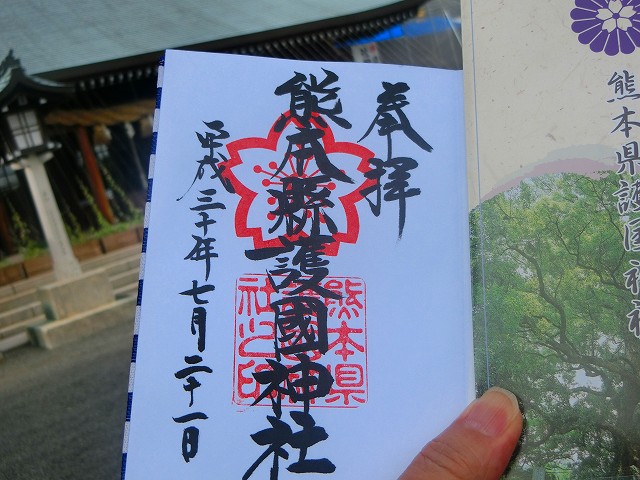 奉拝
熊本縣護國神社
平成三十年七月二十一日
熊本県護国神社之印
熊本県護国神社